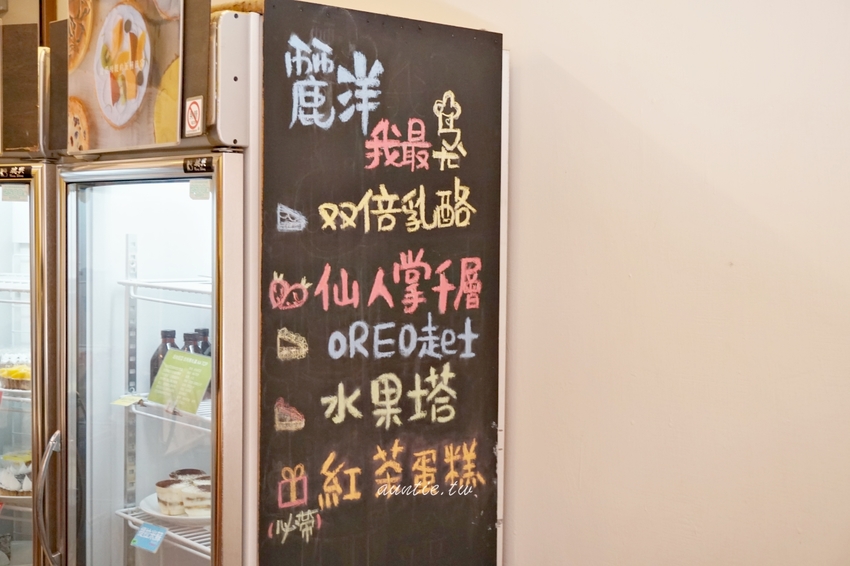 麗洋
我最
双倍乳酪
仙人掌千層
OREO起士
水果塔
紅茶蛋糕
(必帶)
auntie.tw